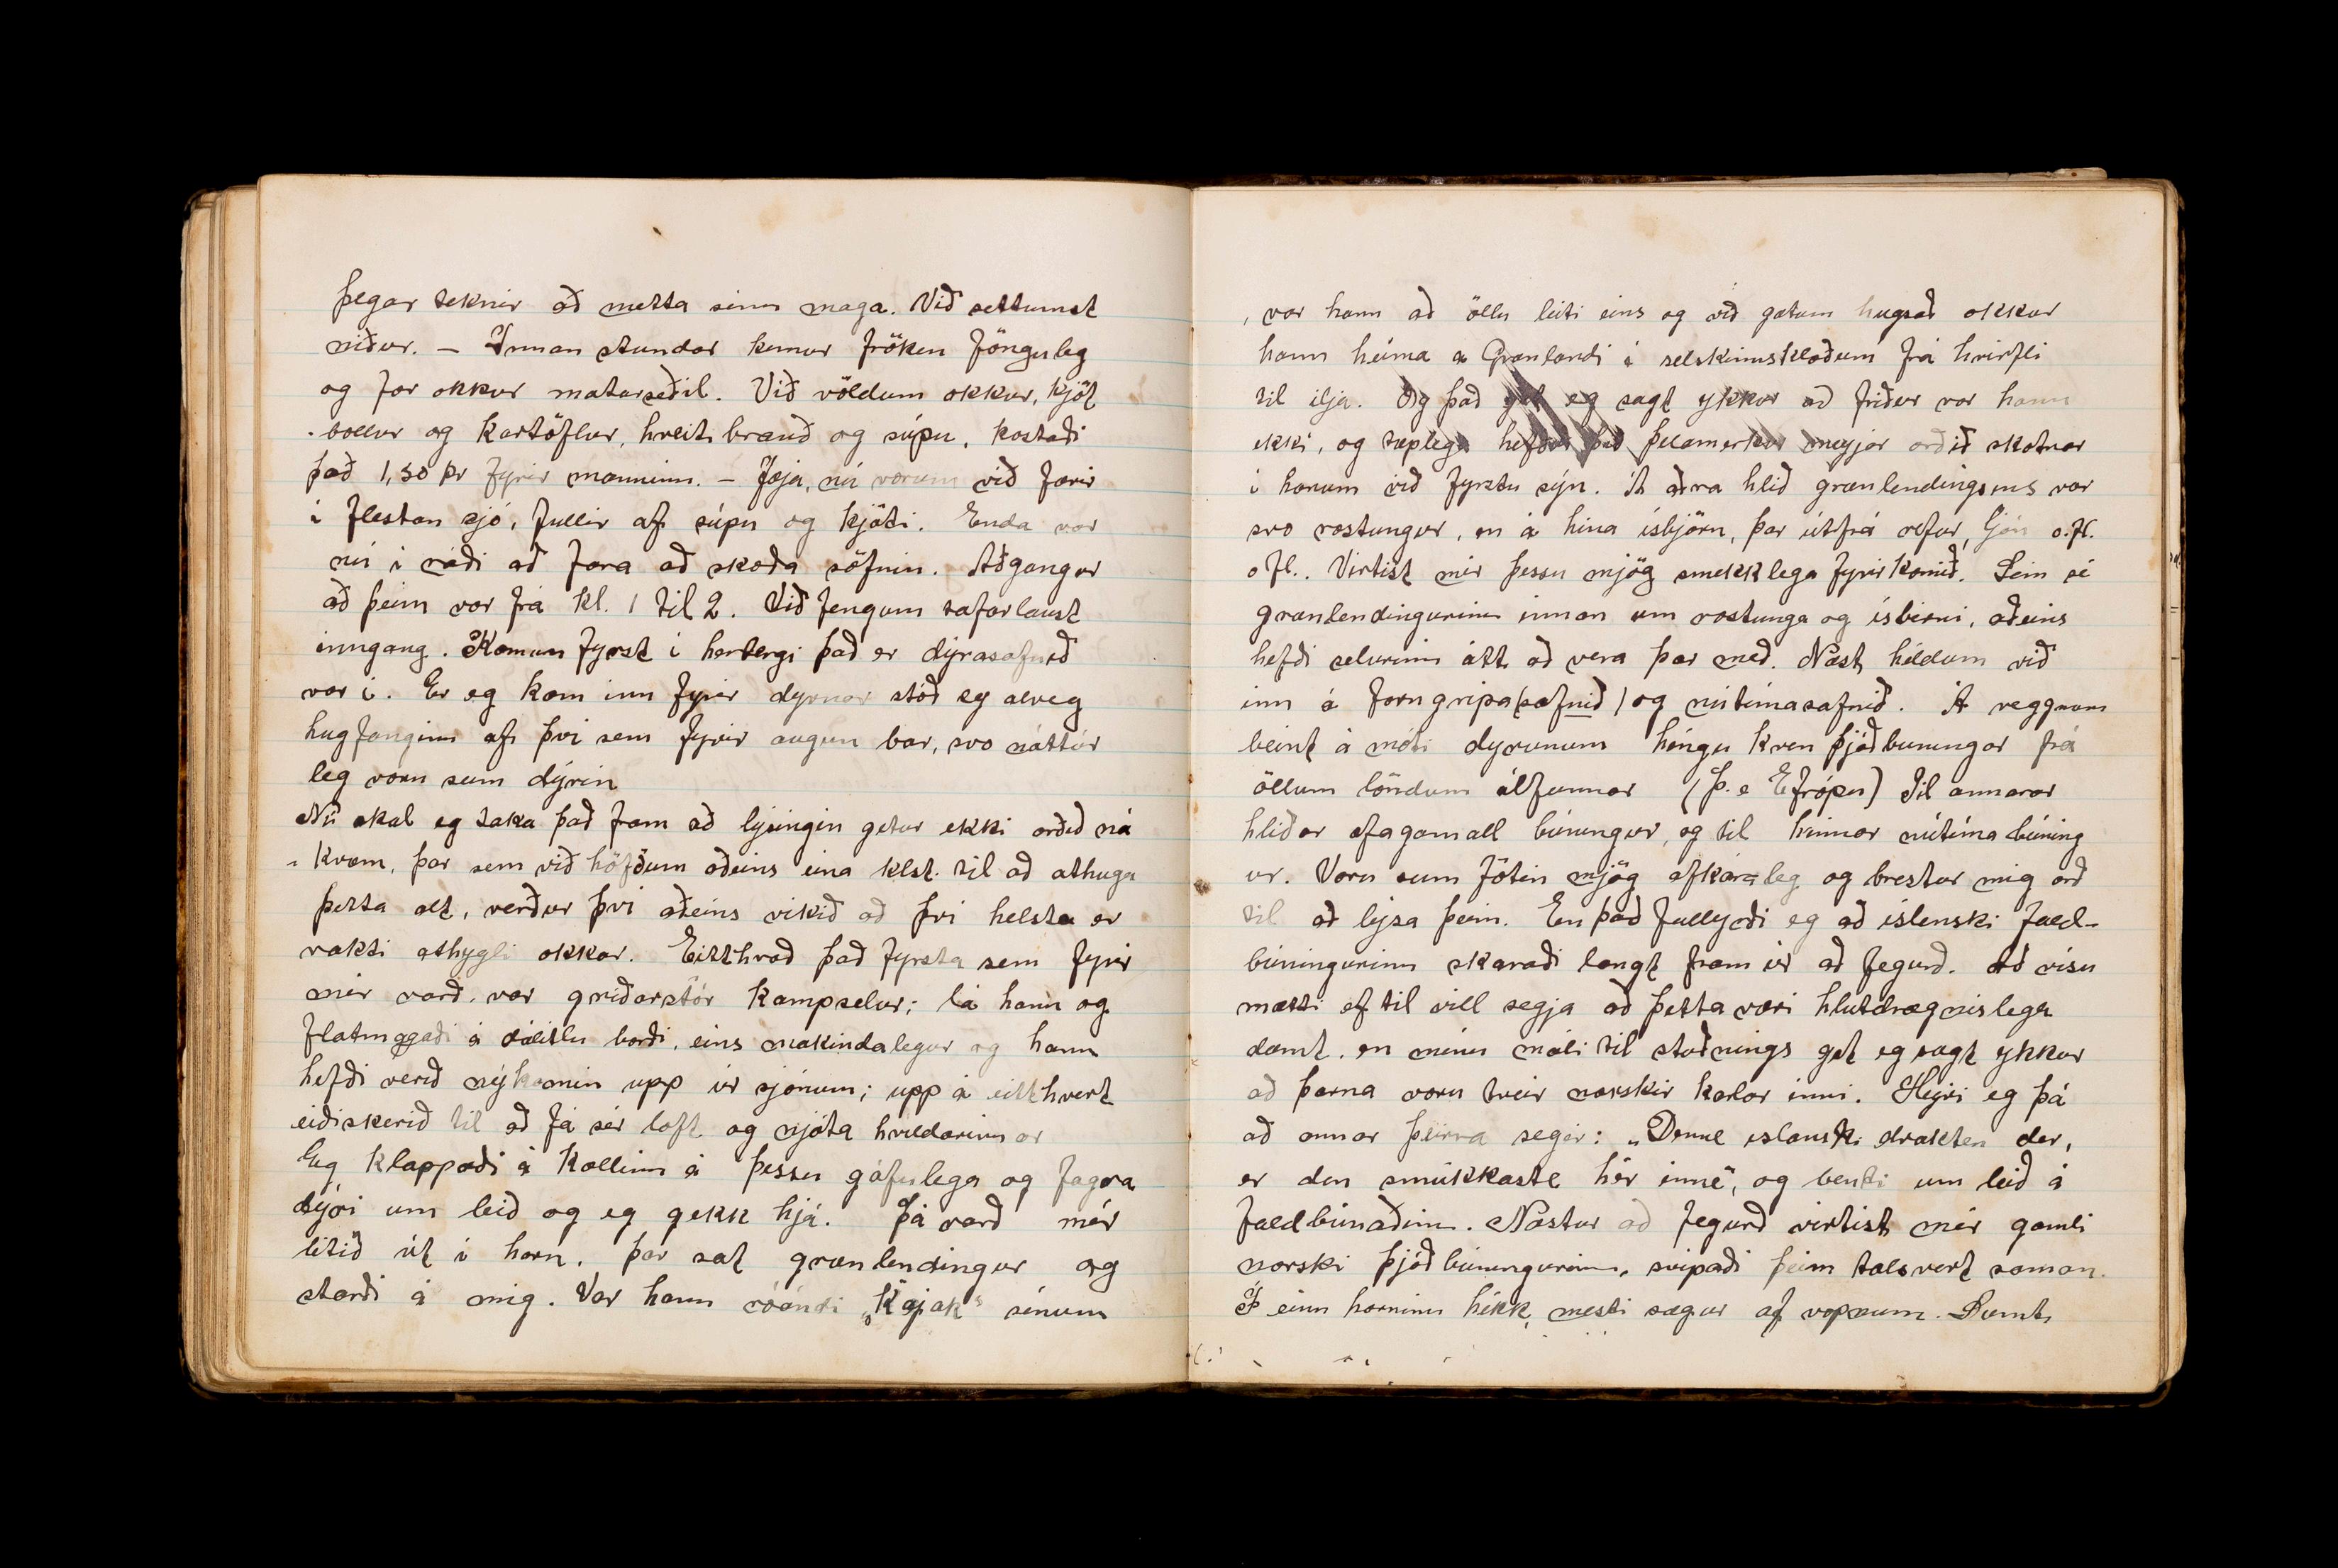 þegar teknir að metta sinn maga. Við settumst
niður. – Innan stundar kemur fröken fönguleg
og fær okkur matarseðil. Við völdum okkur, kjöt
-bollur og kartöflur, hveitibrauð og súpu, kostaði
það 1,50 kr fyrir manninn. – Jæja, nú vorum við færir
í flestan sjó, fullir af súpu og kjöti. Enda var
nú í ráði að fara að skoða söfnin. Aðgangur
að þeim var frá kl. 1 til 2. Við fengum tafarlaust
inngang. Komum fyrst í herbergi það er dýrasafnið
var í. Er eg kom inn fyrir dyrnar stóð eg alveg
hugfanginn af því sem fyrir augun bar, svo náttúr
leg voru sum dýrin
Nú skal eg taka það fram að lýsingin getur ekki orðið ná
-kvæm, þar sem við höfðum aðeins eina klst. til að athuga
þetta alt, verður því aðeins vikið að því helsta er
vakti athygli okkar. Eitthvað það fyrsta sem fyrir
mér varð, var gríðarstór kampselur; lá hann og
flatmagaði á dálitlu borði, eins makindalegur og hann
hefði verið nýkomin upp úr sjónum; upp á eitthvert
eiðiskerið til að fá sér loft og njóta hvildarinnar
Eg klappaði á kollinn á þessu gáfulega og fagra
dýri um leið og eg gekk hjá. Þá varð mér
litið út í horn. Þar sat grænlendingur og
starði á mig. Var hann róandi „Kajak" sínum
, var hann að öllu leiti eins og við gátum hugsað okkur
hann heima a Grænlandi í selskinnsklæðum frá hvirfli
til ilja. Og það get eg sagt ykkur að friður var hann
ekki, og tæplega hefðu það Þelamerkur meyjar orðið skotnar
í honum við fyrstu sýn. A aðra hlið grænlendingsins var
svo rostungur, en á hina ísbjörn, þar útfrá refur, ljón o.fl.
o fl.. Virtist mér þessu mjög smekklega fyrirkomið. Sem sé
grænlendingurinn innan um rostunga og ísbirni, aðeins
hefði selurinn átt að vera þar með. Næst héldum við
inn á forngripa(safnið) og nútímasafnið. Á veggnum
beint á móti dyrunum héngu kven þjóðbúningar frá
öllum löndum álfunnar (þ.e Efrópu) Til annarar
hliðar afagamall búningur, og til hinnar nútíma búning
ur. Voru sum fötin mjög afkáraleg og brestur mig orð
til að lýsa þeim. En það fullyrði eg að íslenski fald-
búningurinn skaraði langt fram úr að fegurð. Að vísu
mætti ef til vill segja að þetta væri hlutdrægnislega
dæmt, en mínu máli til stuðnings get eg sagt ykkur
að þarna voru tveir norskir karlar inni. Heyri eg þá
að annar þeirra segir: „Denne islanski drakten der,
er den smukkaste hér inne", og benti um leið á
faldbúnaðinn. Næstur að fegurð virtist mér gamli
norski þjóðbúningurinn, svipaði þeim talsvert saman.
Í einu horninu hékk mesti sægur af vopnum. Sumt